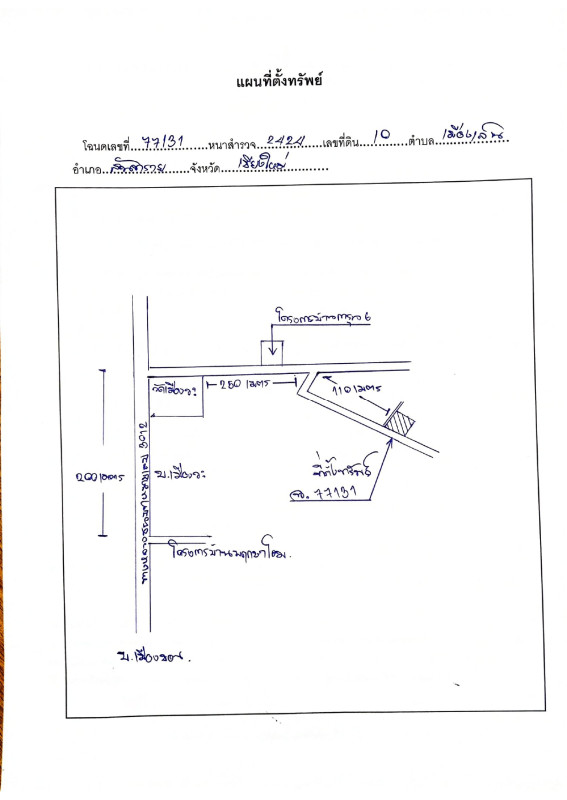 แผนที่ตั้งทรัพย์
โฉนดเลขที่ 77131 หน้าสำรวจ 2424 เลขที่ดิน 10 ตำบล เมืองเล็น
อำเภอ สันทราย จังหวัด เชียงใหม่
โครงการบ้านกรุง 6
วัดเมืองวะ
250 เมตร
110 เมตร
200 เมตร
บ.เมืองวะ
ที่ตั้งทรัพย์
ฉ. 77131
โครงการบ้านพฤกษาโฮม.
บ.เมืองขอน.